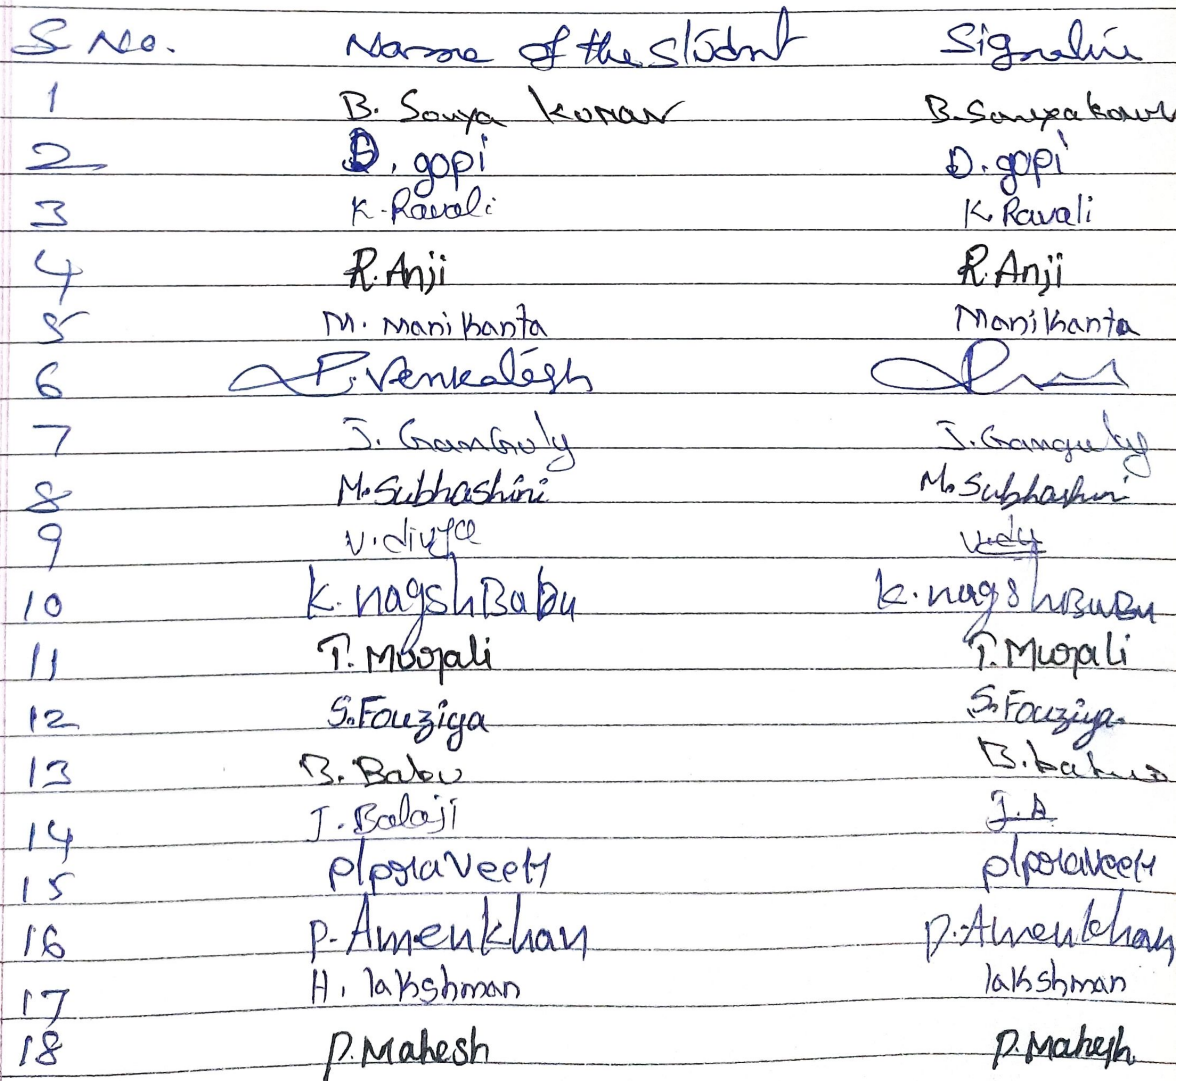 S No. Name of the Student Signature
1 B. Sourya kumar B. Sourya kumar
2 D. gopi D. gopi
3 K. Ravali K. Ravali
4 R. Anji R. Anji
5 M. Manikanta Manikanta
6 P. Venkatesh
7 J. GanGuly J. Ganguly
8 M. Subhashini M. Subhashini
9 V. divya V. dy
10 K. nagsh Babu K. nagsh BaBu
11 T. Murali T. Murali
12 S. Fouziya S. Fouziya
13 B. Babu B. babu
14 J. Balaji J. B
15 P praveen P praveen
16 P. Amenkhan P. Amenkhan
17 H. lakshman lakshman
18 P. Mahesh P. Mahesh